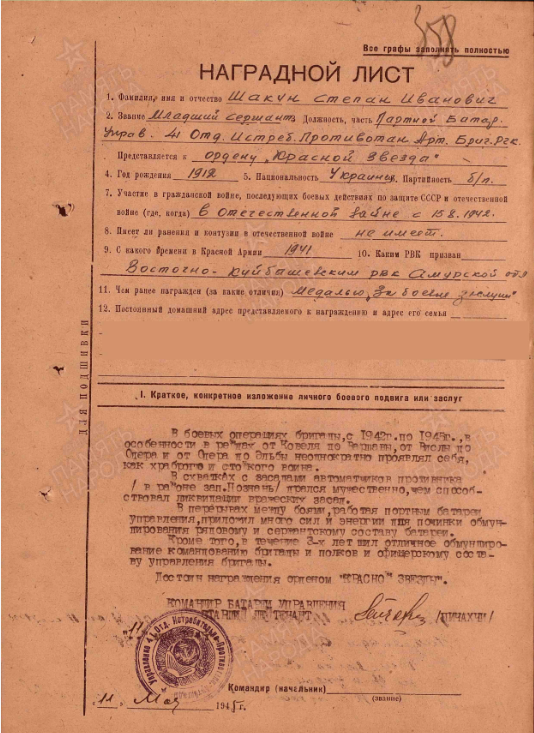 358
Все графы заполнять полностью
НАГРАДНОЙ ЛИСТ
1. Фамилия, имя и отчество Шакун Степан Иванович
2. Звание Младший сержант 3. Должность, часть Партной Батар.
Управ. 41 Отд. Истреб. Противотан. Арт. Бриг. РГК.
Представляется к ордену "Красной Звезда"
4. Год рождения 1912 5. Национальность Украинец 6. Партийность б/п.
7. Участие в гражданской войне, последующих боевых действиях по защите СССР и отечественной
войне (где, когда) В Отечественной войне с 15.8.1942.
8. Имеет ли ранения и контузии в отечественной войне не имеет.
9. С какого времени в Красной Армии 1941 10. Каким РВК призван
Восточно-Куйбашевским РВК Амурской обл
11. Чем ранее награжден (за какие отличия) Медалью "За боевые заслуги"
12. Постоянный домашний адрес представляемого к награждению и адрес его семьи
ДЛЯ ПОДШИВКИ
I. Краткое, конкретное изложение личного боевого подвига или заслуг
В боевых операциях бригады, с 1942г. по 1945г., в
особенности в рейдах от Ковеля до Варшавы, от Вислы до
Одера и от Одера до Эльбы неоднократно проявлял себя,
как храброго и стойкого воина.
В схватках с засадами автоматчиков противника
/ в районе зап. Познань/ дрался мужественно, чем способ-
ствовал ликвидации вражеских засад.
В перерывах между боями, работая портным батареи
управления, приложил много сил и энергии для починки обмун-
дирования рядовому и сержантскому составу батареи.
Кроме того, в течение 3-х лет шил отличное обмундиро-
вание командованию бригады и полков и офицерскому соста-
ву управления бригады.
Достоин награждения орденом "КРАСНОЙ ЗВЕЗДЫ".
КОМАНДИР БАТАРЕИ УПРАВЛЕНИЯ
СТАРШИЙ ЛЕЙТЕНАНТ /ПИЧАХЧИ/
"11"
Командир (начальник)
(звание)
"11" Мая 1945 г.